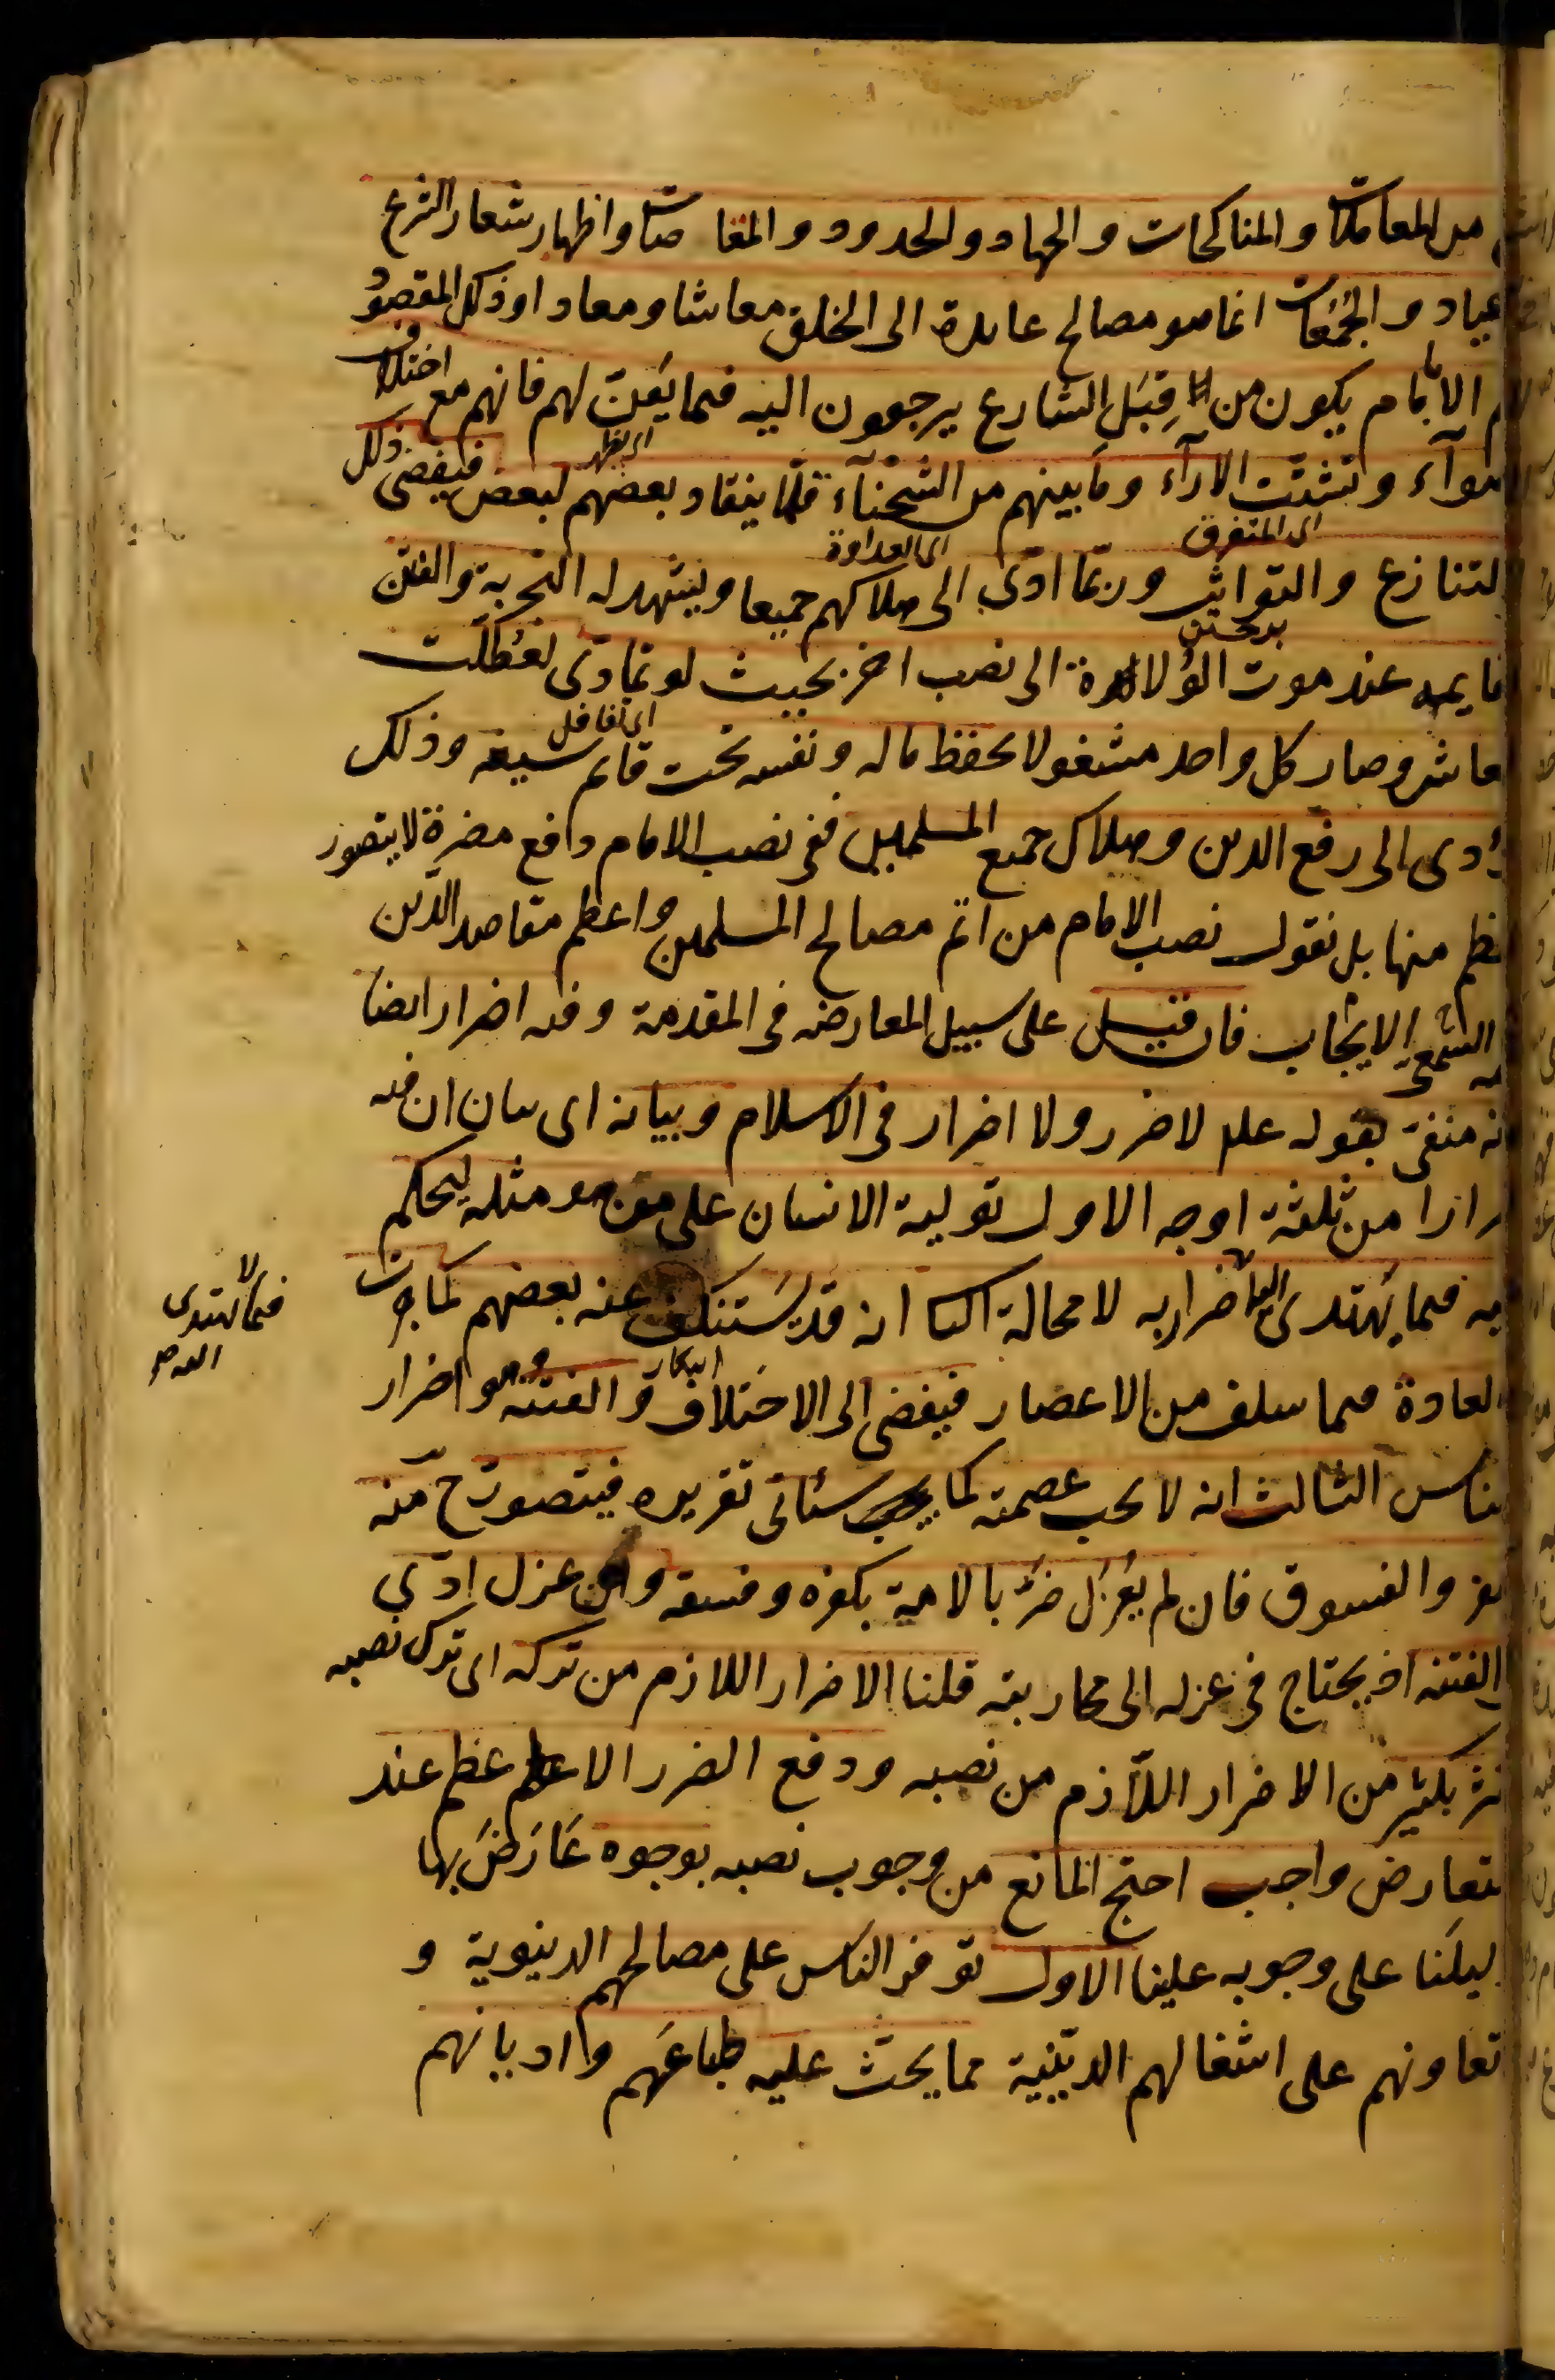 من المعاملات والمناكحات والجهاد والحدود والمقاصات واظهار شعار الشرع
عياد والجُمُعات انما هو مصالح عايدة الى الخلق معاشا ومعادا وذلك المقصود
الا بامام يكون من قِبَل الشارع يرجعون اليه فيما يَعِنّ لهم فانهم مع اختلاف
اى يظهر
هوآء وتشتّت الارآء وما بينهم من الشحنآء قلّما ينقاد بعضهم لبعض فيفضى ذلك
اى المتفرق
اى العداوة
التنازع والتواثب وربّما ادّى الى هلاكهم جميعا ويشهد له التجربة والفتن
قايمه عند موت الوُلاة الى نصب اخر بحيث لو تمادى لعُطّلت
اى تغافل
معاش وصار كل واحد مشغولا بحفظ ماله ونفسه تحت قايم سيفه وذلك
ؤدى الى رفع الدين وهلاك جميع المسلمين ففى نصب الامام دافع مضرة لا يتصور
عظم منها بل نقول نصب الامام من اتم مصالح المسلمين واعظم مقاصد الدين
السّمعىّ الايجاب فان قيل على سبيل المعارضه فى المقدمة وفيه اضرار ايضا
نه منفىّ بقوله علم لا ضرر ولا اضرار فى الاسلام وبيانه اى بيان ان فيه
رارا من ثلثة اوجه الاول تولية الانسان على من هو مثله ليحكم
يه فيما يَهتدى اليه اضرار به لا محالة الثا انه قد يَستنكف عنه بعضهم كما جرت
فيما لا يهتدى
اليه صح
العادة فيما سلف من الاعصار فيفضى الى الاختلاف والفتنة وهو اضرار
ناس الثالث انه لا يجب عصمته كما سياتى تقريره فيتصور ح منه
فر والفسوق فان لم يُعزَل ضرّ بالامة بكفره وفسقه وان عزل ادّى
الفتنه اذ يحتاج فى عزله الى محاربته قلنا الاضرار اللازم من تركه اى ترك نصبه
ثر بكثير من الاضرار اللّازم من نصبه ودفع الضرر الاعظم عند
لتعارض واجب احتج المانع من وجوب نصبه بوجوه عَارَضَ بها
ليلنا على وجوبه علينا الاول توفر الناس على مصالحهم الدنيوية و
تعاونهم على اشغالهم الدّينية مما يحث عليه طباعهم واديانهم